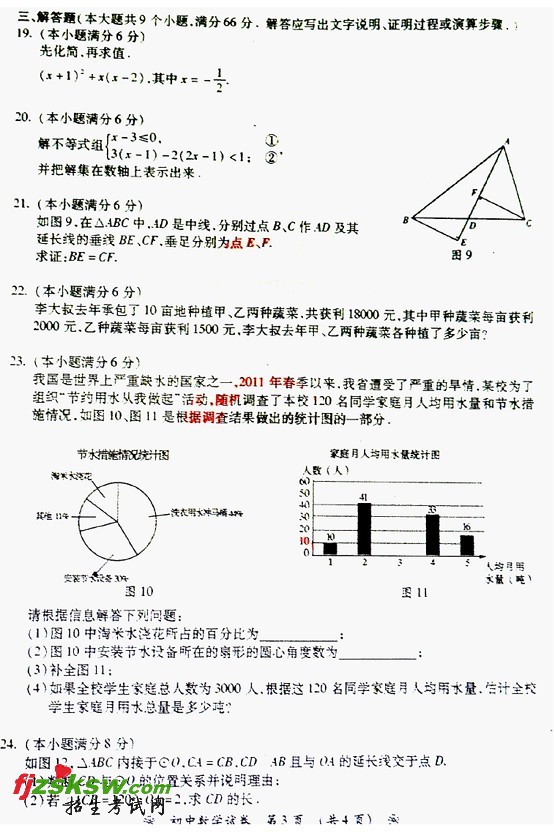 三、解答题(本大题共9个小题,满分66分．解答应写出文字说明、证明过程或演算步骤．)
19.(本小题满分6分)
先化简,再求值．
(x+1)²+x(x-2),其中x=-1/2.
20.(本小题满分6分)
解不等式组{x-3≤0, ①
3(x-1)-2(2x-1)<1; ②,
并把解集在数轴上表示出来．
21.(本小题满分6分)
如图9,在△ABC中,AD是中线,分别过点B、C作AD及其
延长线的垂线BE、CF,垂足分别为点E、F.
求证:BE=CF.
A
F
B
D
C
E
图9
22.(本小题满分6分)
李大叔去年承包了10亩地种植甲、乙两种蔬菜,共获利18000元,其中甲种蔬菜每亩获利
2000元,乙种蔬菜每亩获利1500元,李大叔去年甲、乙两种蔬菜各种植了多少亩?
23.(本小题满分6分)
我国是世界上严重缺水的国家之一,2011年春季以来,我省遭受了严重的旱情,某校为了
组织"节约用水从我做起"活动,随机调查了本校120名同学家庭月人均用水量和节水措
施情况,如图10、图11是根据调查结果做出的统计图的一部分．
节水措施情况统计图
淘米水浇花
其他11%
洗衣用水冲马桶44%
安装节水设备30%
图10
家庭月人均用水量统计图
人数(人)
60
50
40
30
20
10
0
10
41
33
16
1 2 3 4 5
人均月用
水量(吨)
图11
请根据信息解答下列问题:
(1)图10中淘米水浇花所占的百分比为____________;
(2)图10中安装节水设备所在的扇形的圆心角度数为____________;
(3)补全图11;
(4)如果全校学生家庭总人数为3000人,根据这120名同学家庭月人均用水量,估计全校
学生家庭月用水总量是多少吨?
24.(本小题满分8分)
如图12,△ABC内接于⊙O,CA=CB,CD AB且与OA的延长线交于点D.
(1)判断CD与⊙O的位置关系并说明理由;
(2)若∠ACB=120°,OA=2,求CD的长．
fjzsksw.com
招生考试网
初中数学试卷 第3页 (共4页)